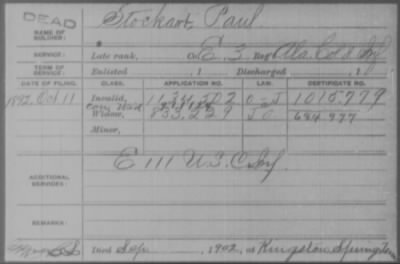 DEAD
NAME OF SOLDIER: Stockart Paul
SERVICE: Late rank, Co. E. 3 Reg't Ala. Col'd Inf
TERM OF SERVICE: Enlisted , 1 Discharged , 1
DATE OF FILING. CLASS. APPLICATION NO. LAW. CERTIFICATE NO.
1892 Oct 11 Invalid, 1015.779
Widow, 833,229 684 977
Minor,
ADDITIONAL SERVICES: E 111 U.S.C. Inf
REMARKS:
Died Sep , 1902, at Kingston Springs